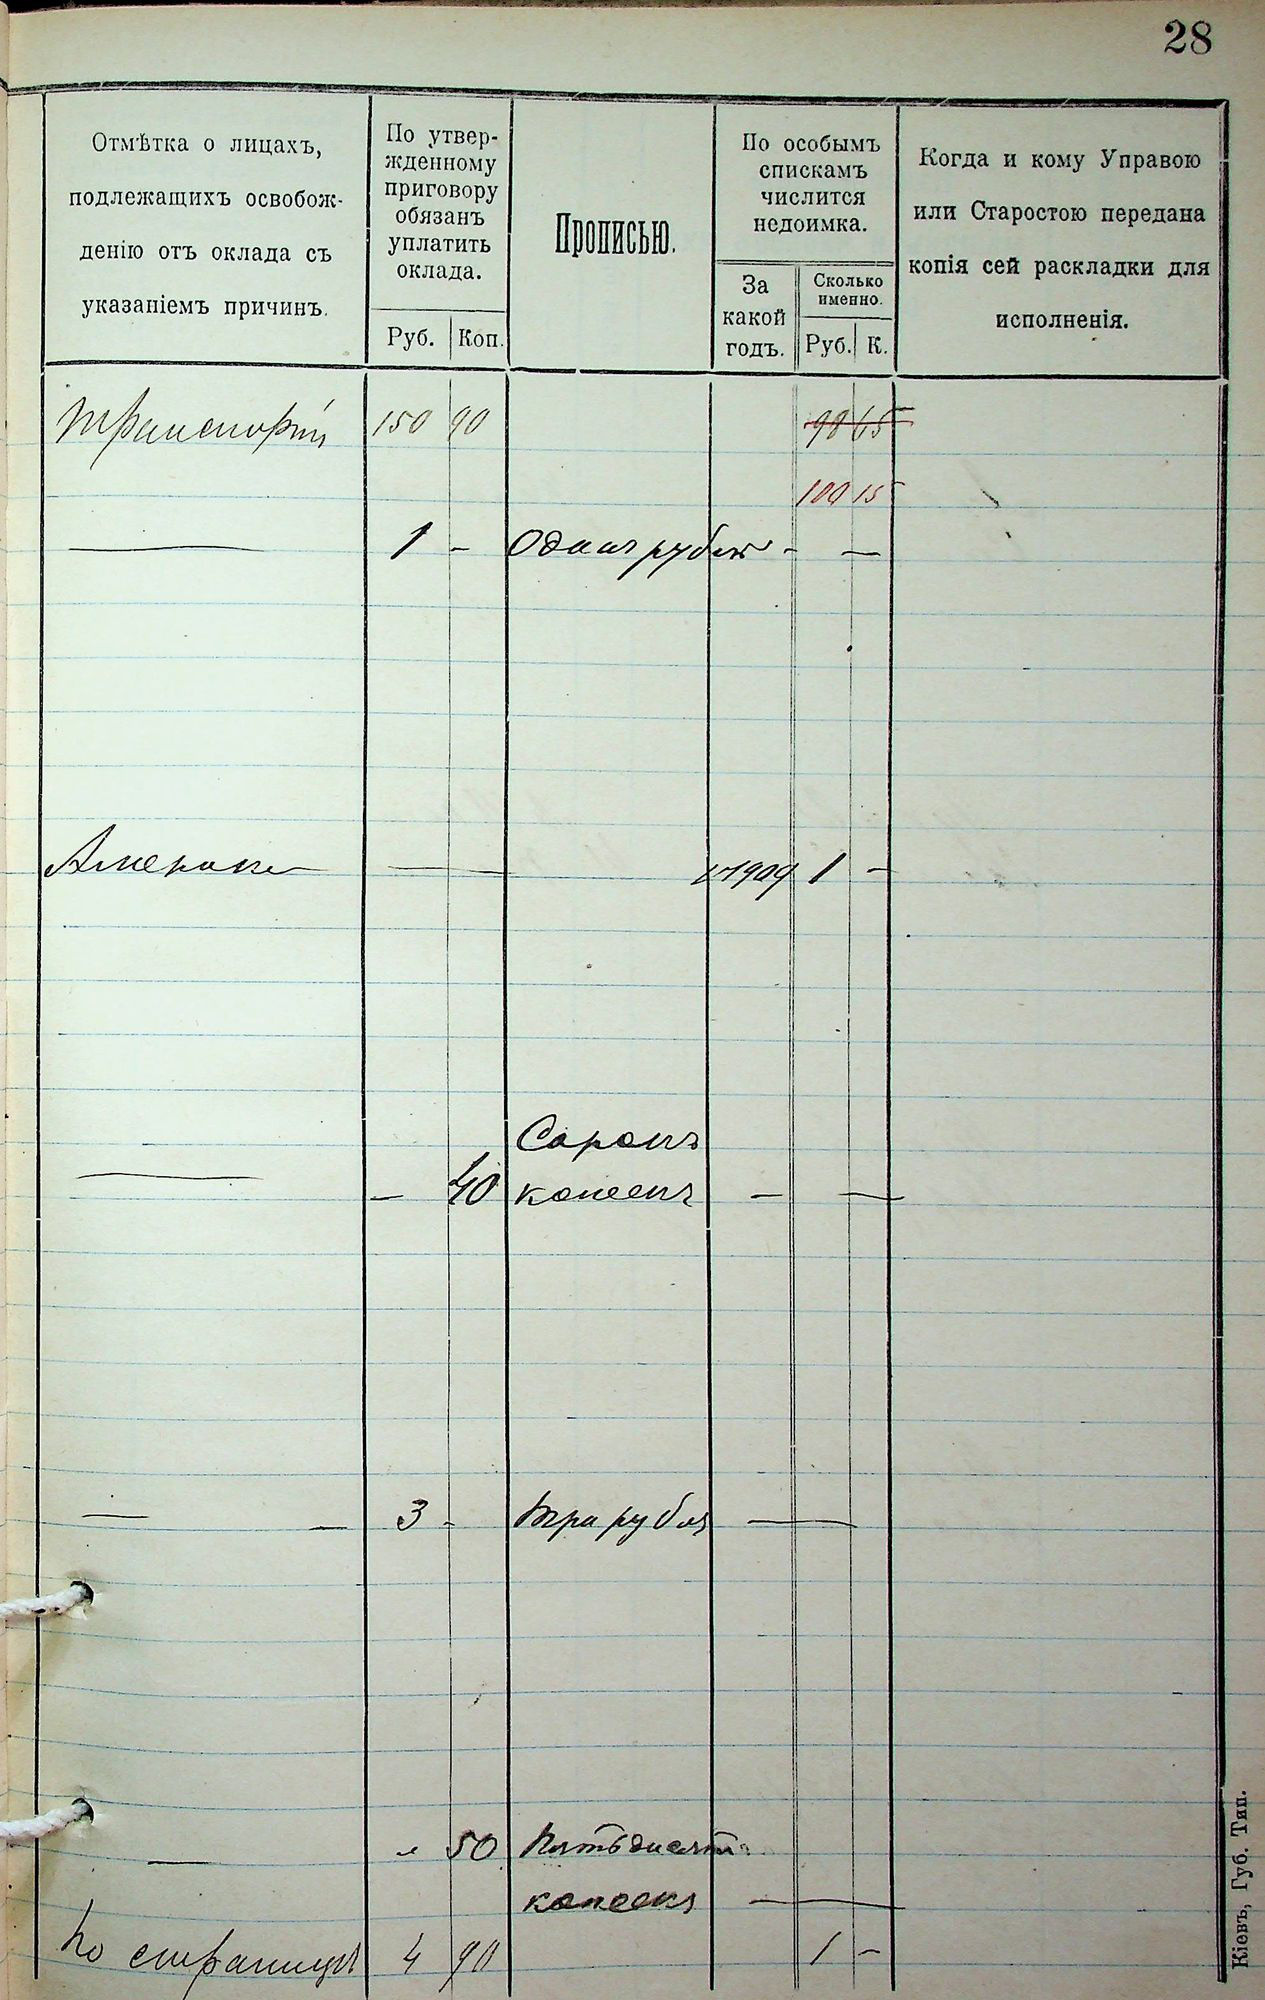 28
Отмѣтка о лицахъ,
подлежащихъ освобож-
денію отъ оклада съ
указаніемъ причинъ.
По утвер-
жденному
приговору
обязанъ
уплатить
оклада.
Руб. Коп.
Прописью.
По особымъ
спискамъ
числится
недоимка.
За
какой
годъ.
Сколько
именно.
Руб. К.
Когда и кому Управою
или Старостою передана
копія сей раскладки для
исполненія.
Транспортъ 150 90 98 65
100 15
1 - Одинъ рубль - —
— 1909 1 -
Сорокъ
— 40 копѣекъ — —
— — 3 - Три рубля —
— 50 Пятьдесятъ
копѣекъ —
По страницѣ 4 90 1 -
Кіевъ, Губ. Тип.